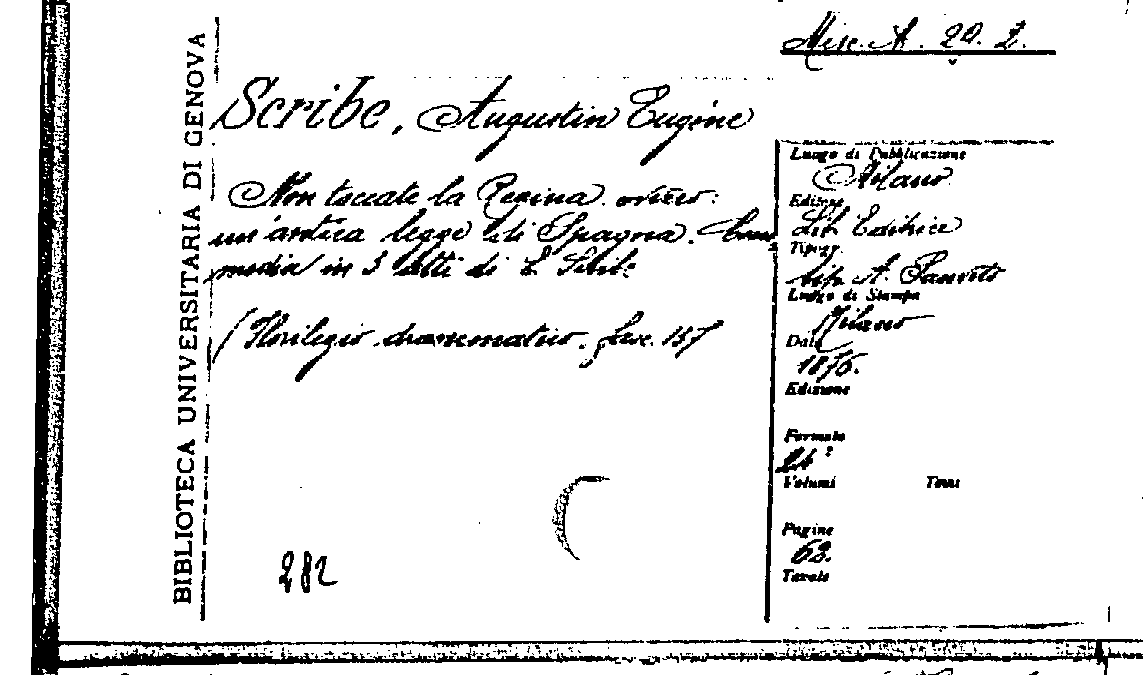 Misc. A. 20. 2.
BIBLIOTECA UNIVERSITARIA DI GENOVA
Scribe, Augustin Eugène
Non toccate la Regina ovvero:
un'antica legge di Spagna. Com
media in 3 atti di E. Scribe
(Florilegio drammatico. fasc. 157
282
Luogo di Pubblicazione
Milano
Editore
Lib. Editrice
Tipogr.
tip. A.
Luogo di Stampa
Milano
Data
1876.
Edizione
Formato
24°
Volumi Tomi
Pagine
62.
Tavole